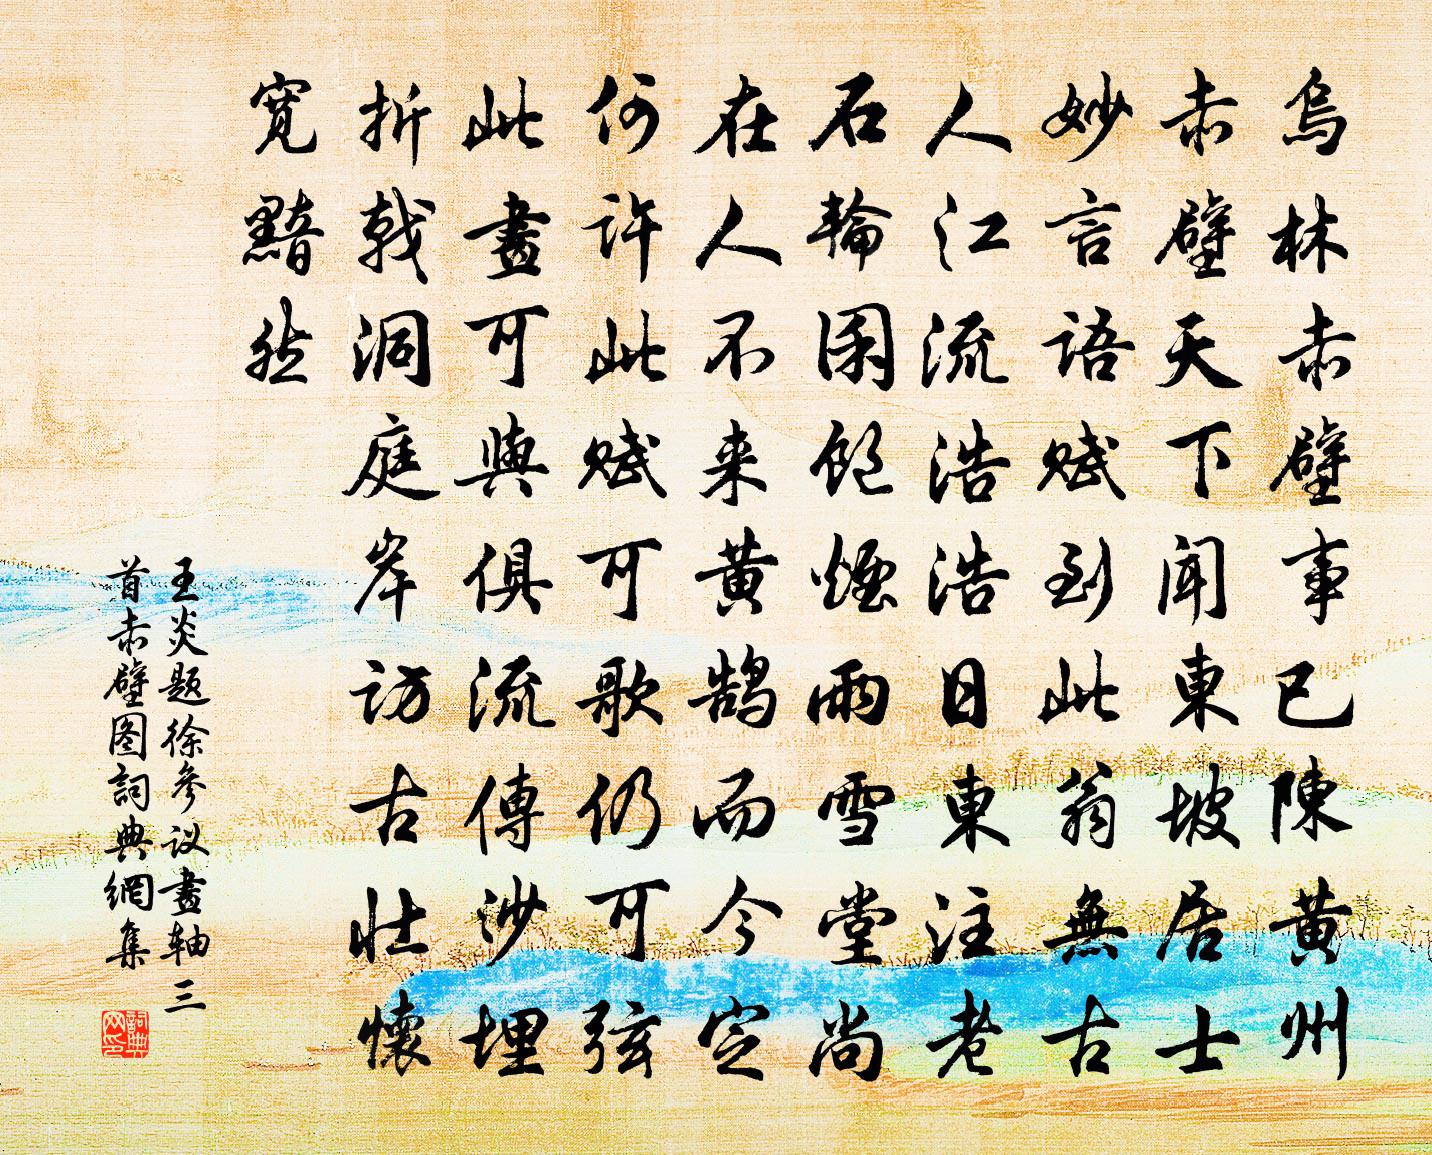 烏林赤壁事已陳黄州
赤壁天下聞東坡居士
妙言語賦到此翁無古
人江流浩浩日東注老
石輪囷飽煙雨雪堂尚
在人不来黄鹄而今定
何許此賦可歌仍可弦
此畫可與俱流傳沙埋
折戟洞庭岸訪古壮懷
寛黯然
王炎题徐参议畫轴三
首赤壁图詞典網集
詞典网印